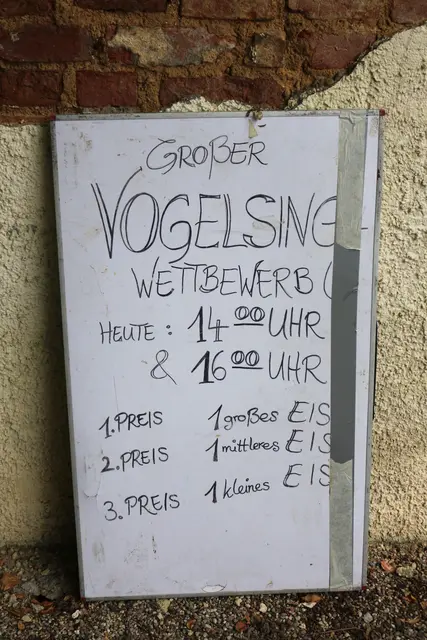 GROßER
VOGELSING-
WETTBEWERB
HEUTE: 14 00 UHR
& 16 00 UHR
1. PREIS 1 großes EIS
2. PREIS 1 mittleres EIS
3. PREIS 1 kleines EIS